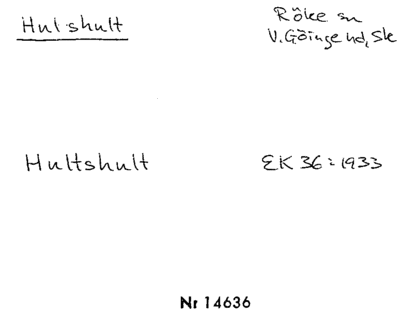 Hulshult
Röke sn
V.Göinge hd, Sk
Hultshult
EK 36:1933
Nr 14636